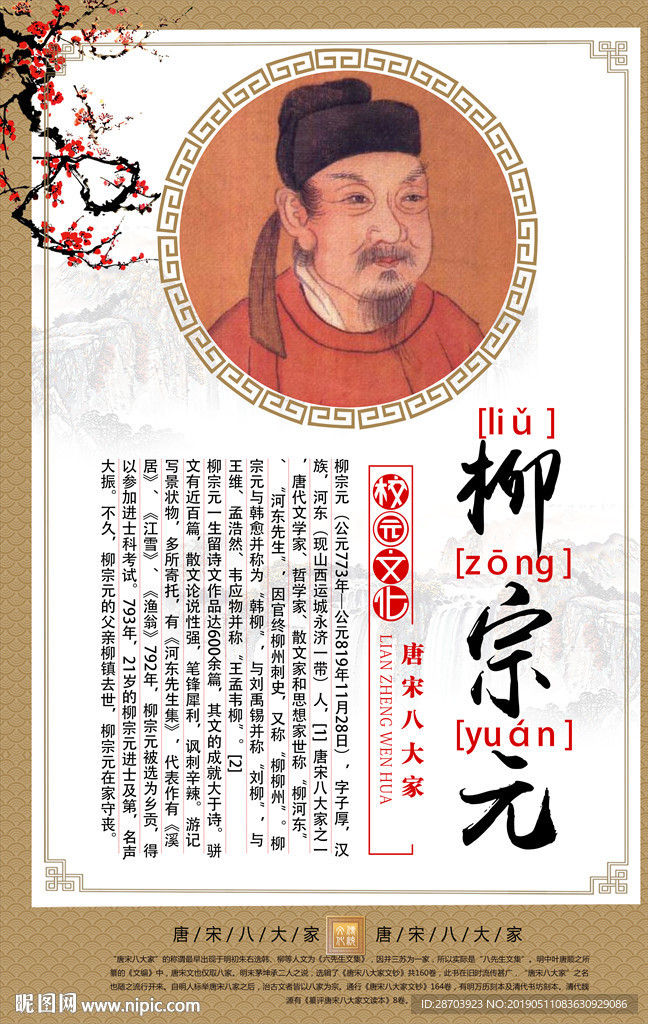 [liǔ]
柳
[zōng]
宗
[yuán]
元
校园文化
唐宋八大家
LIAN ZHENG WEN HUA
柳宗元（公元773年—公元819年11月28日），字子厚，汉
族，河东（现山西运城永济一带）人，[1] 唐宋八大家之一
，唐代文学家、哲学家、散文家和思想家世称“柳河东”
、“河东先生”，因官终柳州刺史，又称“柳柳州”。柳
宗元与韩愈并称为“韩柳”，与刘禹锡并称“刘柳”，与
王维、孟浩然、韦应物并称“王孟韦柳”。[2]
柳宗元一生留诗文作品达600余篇，其文的成就大于诗。骈
文有近百篇，散文论说性强，笔锋犀利，讽刺辛辣。游记
写景状物，多所寄托，有《河东先生集》，代表作有《溪
居》、《江雪》、《渔翁》792年，柳宗元被选为乡贡，得
以参加进士科考试。793年，21岁的柳宗元进士及第，名声
大振。不久，柳宗元的父亲柳镇去世，柳宗元在家守丧。
唐/宋/八/大/家
唐/宋/八/大/家
“唐宋八大家”的称谓最早出现于明初朱右选韩、柳等人文为《六先生文集》，因并三苏为一家，所以实际是“八先生文集”。明中叶唐顺之所
纂的《文编》中，唐宋文也仅取八家。明末茅坤承二人之说，选辑了《唐宋八大家文钞》共160卷，此书在旧时流传甚广，“唐宋八大家”之名
也随之流行开来。自明人标举唐宋八家之后，治古文者皆以八家为宗。通行《唐宋八大家文钞》164卷，有明万历刻本及清代书坊刻本。清代魏
源有《纂评唐宋八大家文读本》8卷。
昵图网 www.nipic.com
ID:28703923 NO:20190511083630929086